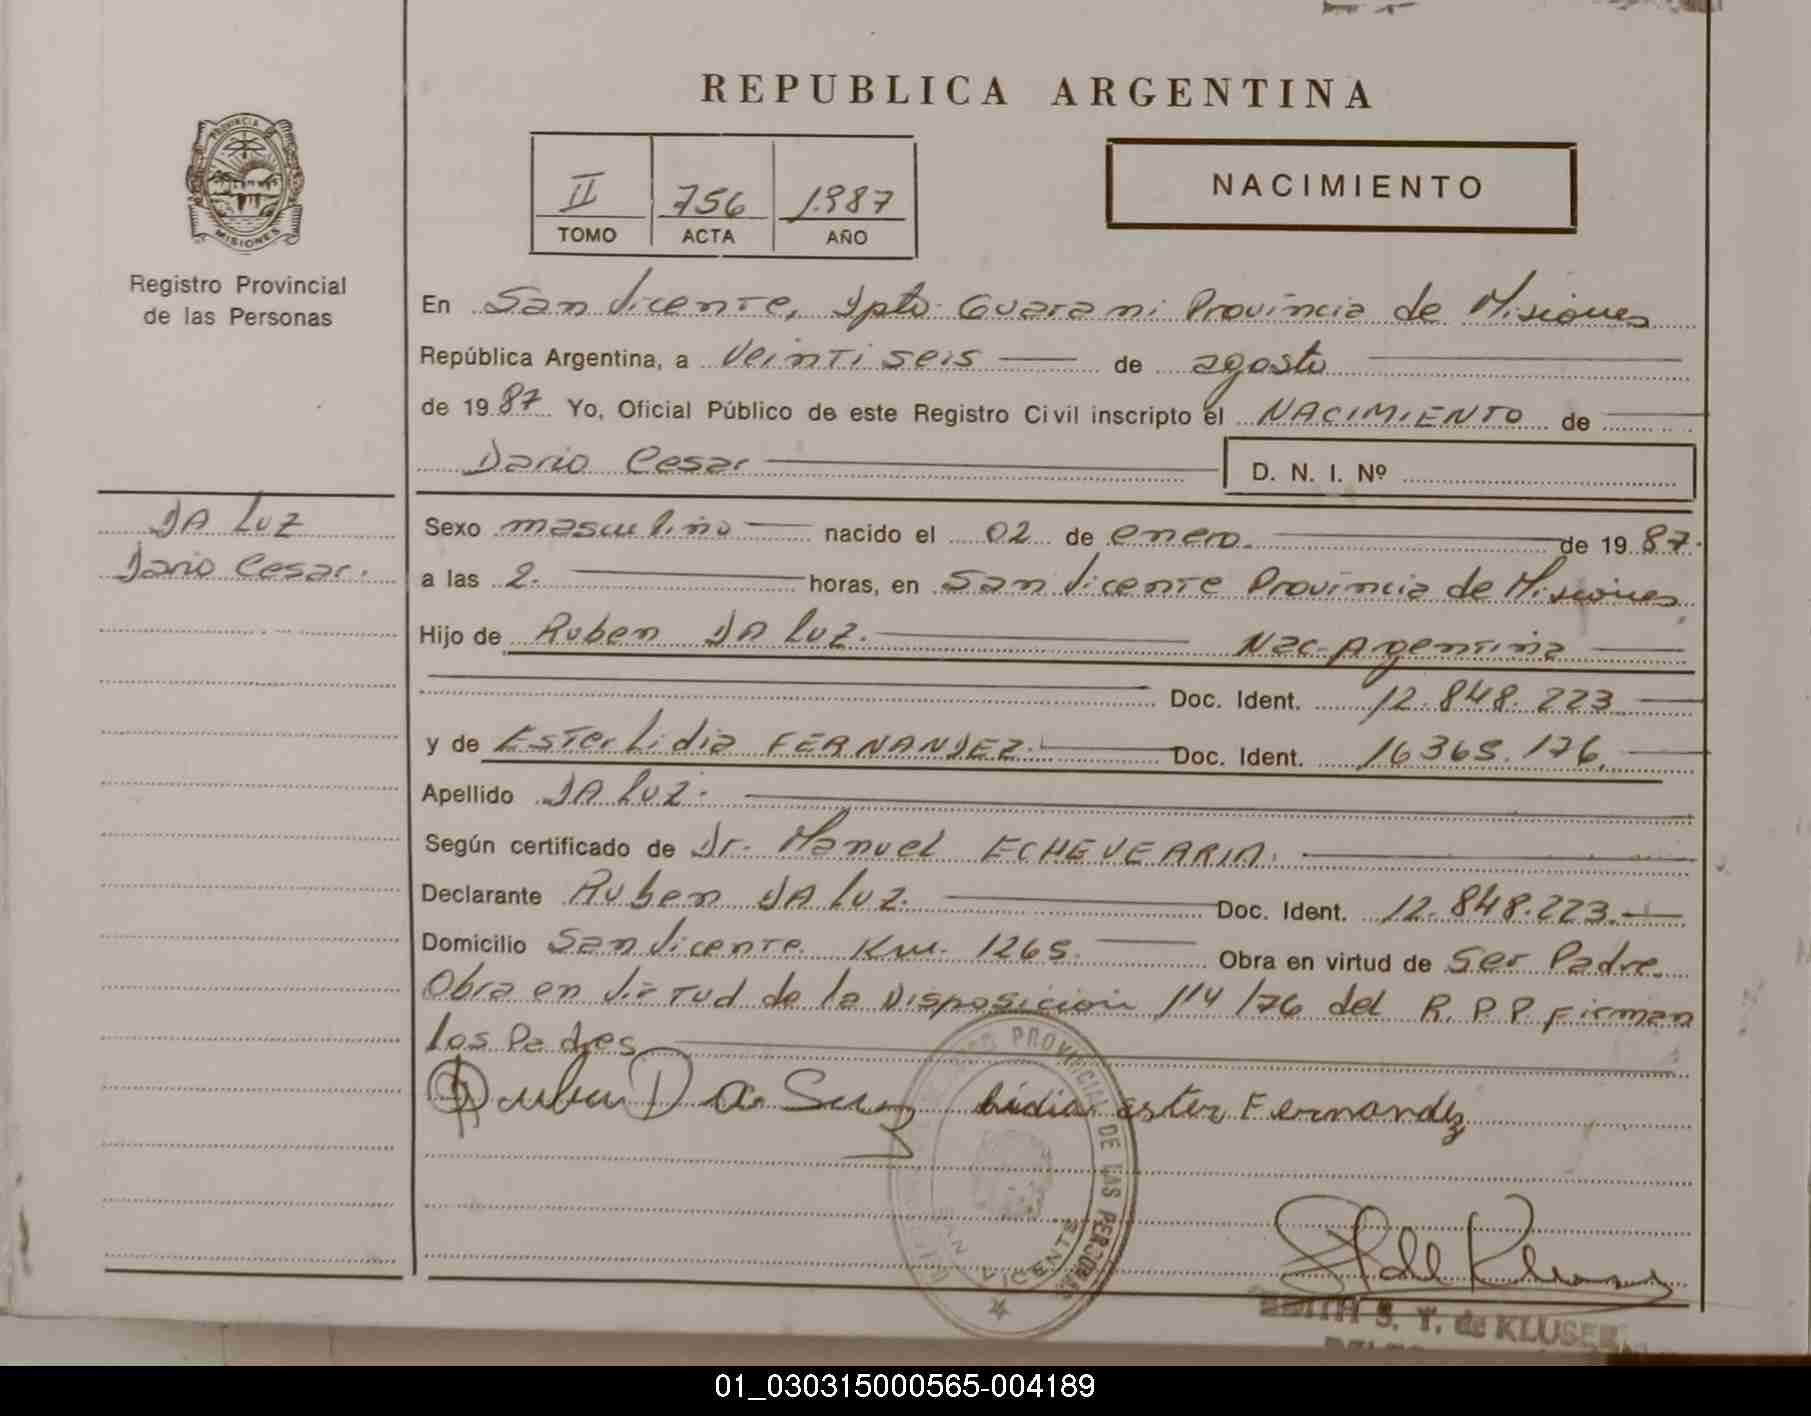 REPUBLICA ARGENTINA
PROVINCIA DE
MISIONES
Registro Provincial
de las Personas
II 756 1987
TOMO ACTA AÑO
NACIMIENTO
En San Vicente, Dpto. Guarani Provincia de Misiones
República Argentina, a Veintiseis de agosto
de 1987 Yo, Oficial Público de este Registro Civil inscripto el NACIMIENTO de
Dario Cesar D. N. I. Nº
DA LUZ
Dario Cesar.
Sexo masculino nacido el 02 de enero. de 1987.
a las 2. horas, en San Vicente Provincia de Misiones
Hijo de Ruben DA LUZ. Nac. Argentina
Doc. Ident. 12.848.223
y de Ester Lidia FERNANDEZ. Doc. Ident. 16365.176.
Apellido DA LUZ.
Según certificado de Dr. Manuel ECHEVEARIA.
Declarante Ruben DA LUZ. Doc. Ident. 12.848.223.
Domicilio San Vicente. Km. 1265. Obra en virtud de Ser Padre.
Obra en Virtud de la Disposicion 114/76 del R.P.P. Firman
los Padres
Ruben Da Luz Lidia ester Fernandez
PROVINCIAL DE LAS PERSONAS
VICENTE
S. T. de KLUSER
01_030315000565-004189